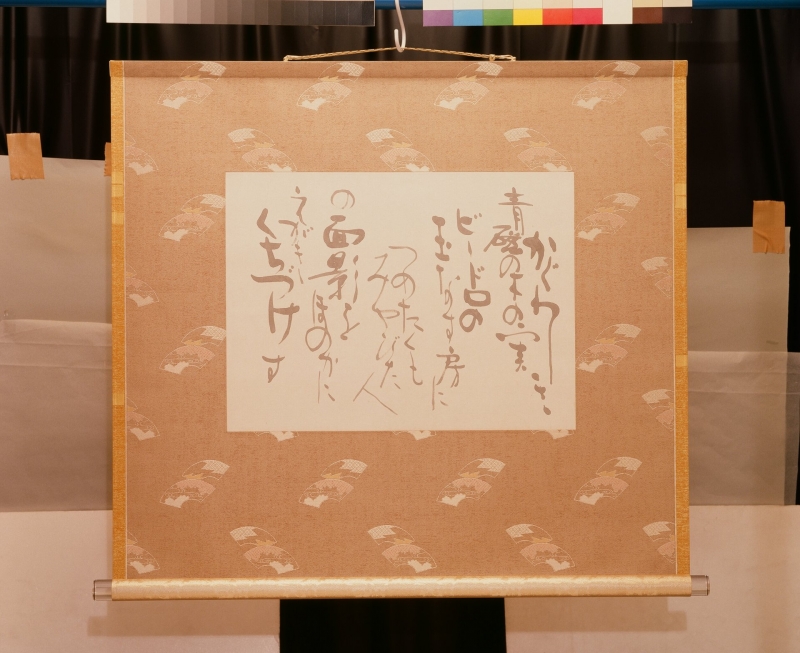 かぐわしき
青磁の木の実
ビードロの
玉なす房に
つめたくも
みやびた人
の面影を
ほのかに
えがき
くちづけす